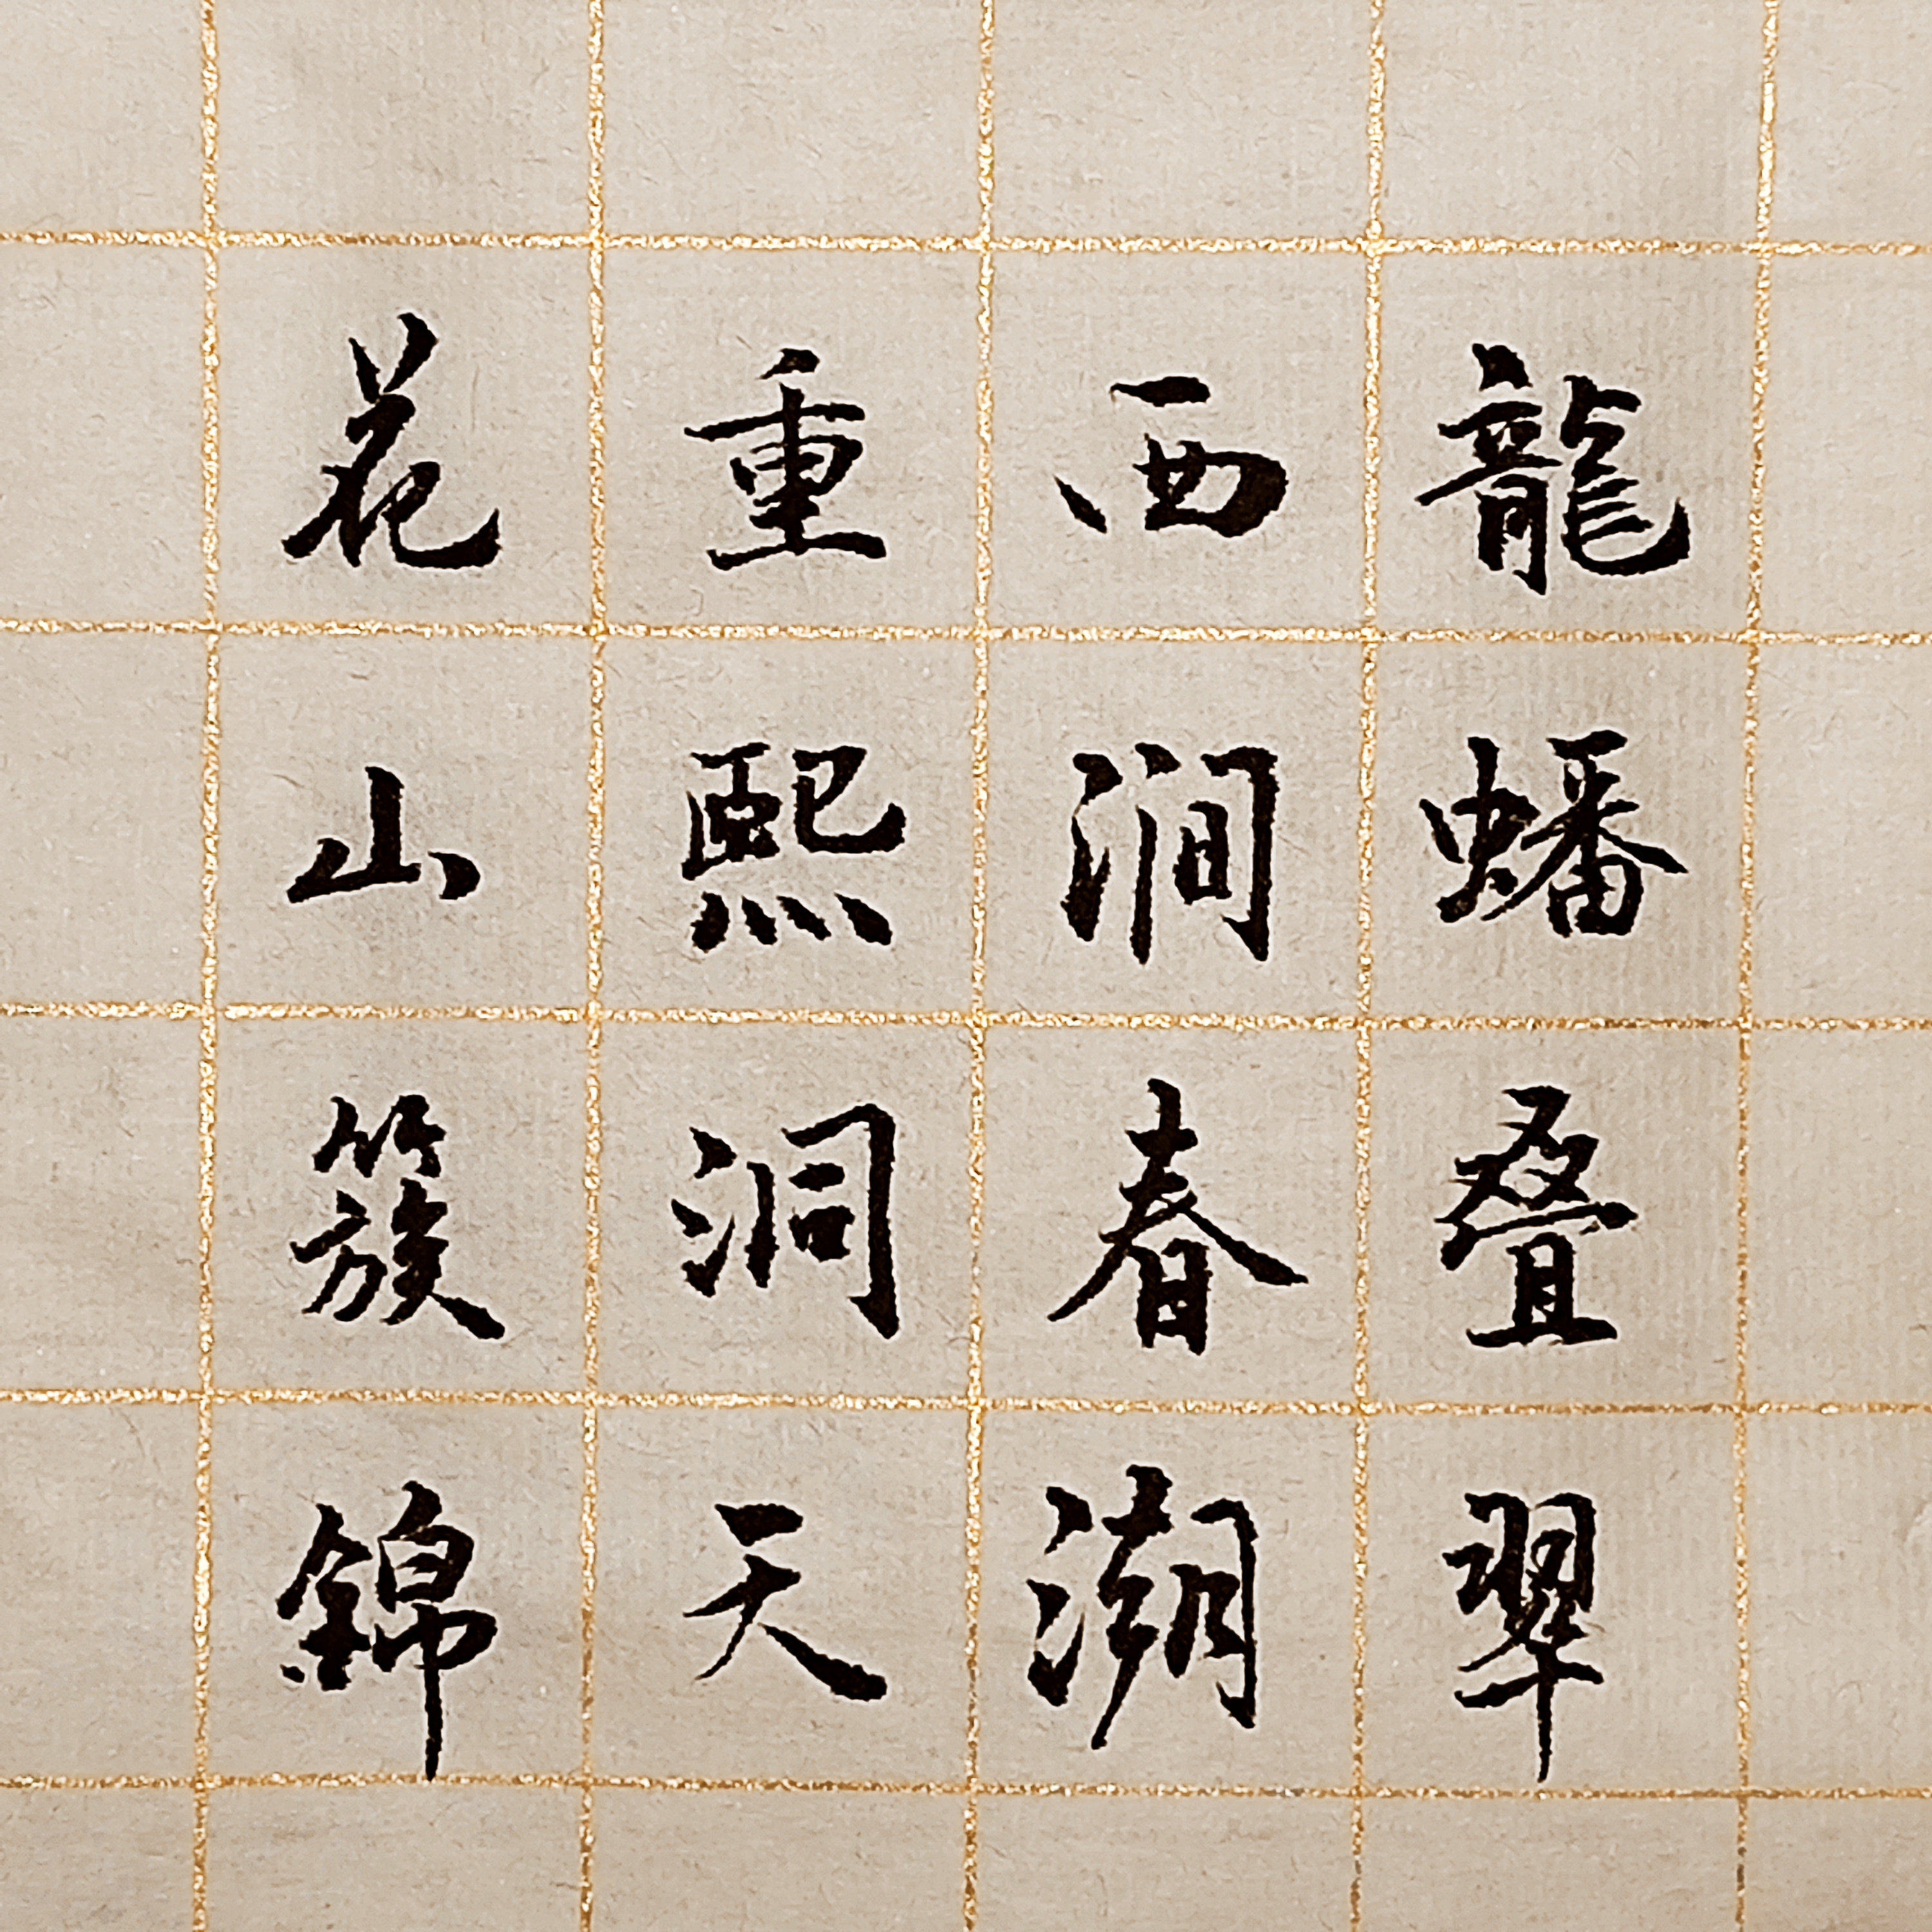 龍蟠叠翠
西澗春潮
重熙洞天
花山簇錦